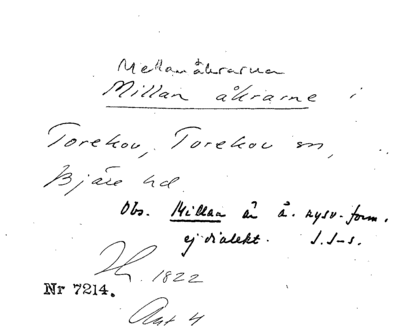 Mellanåkrarna
Millan åkrarne i
Torekov, Torekov sn,
Bjäre hd.
Obs. Millan är ä. nysv. form.
ej dialekt. J. S-s.
1822
Nr 7214.